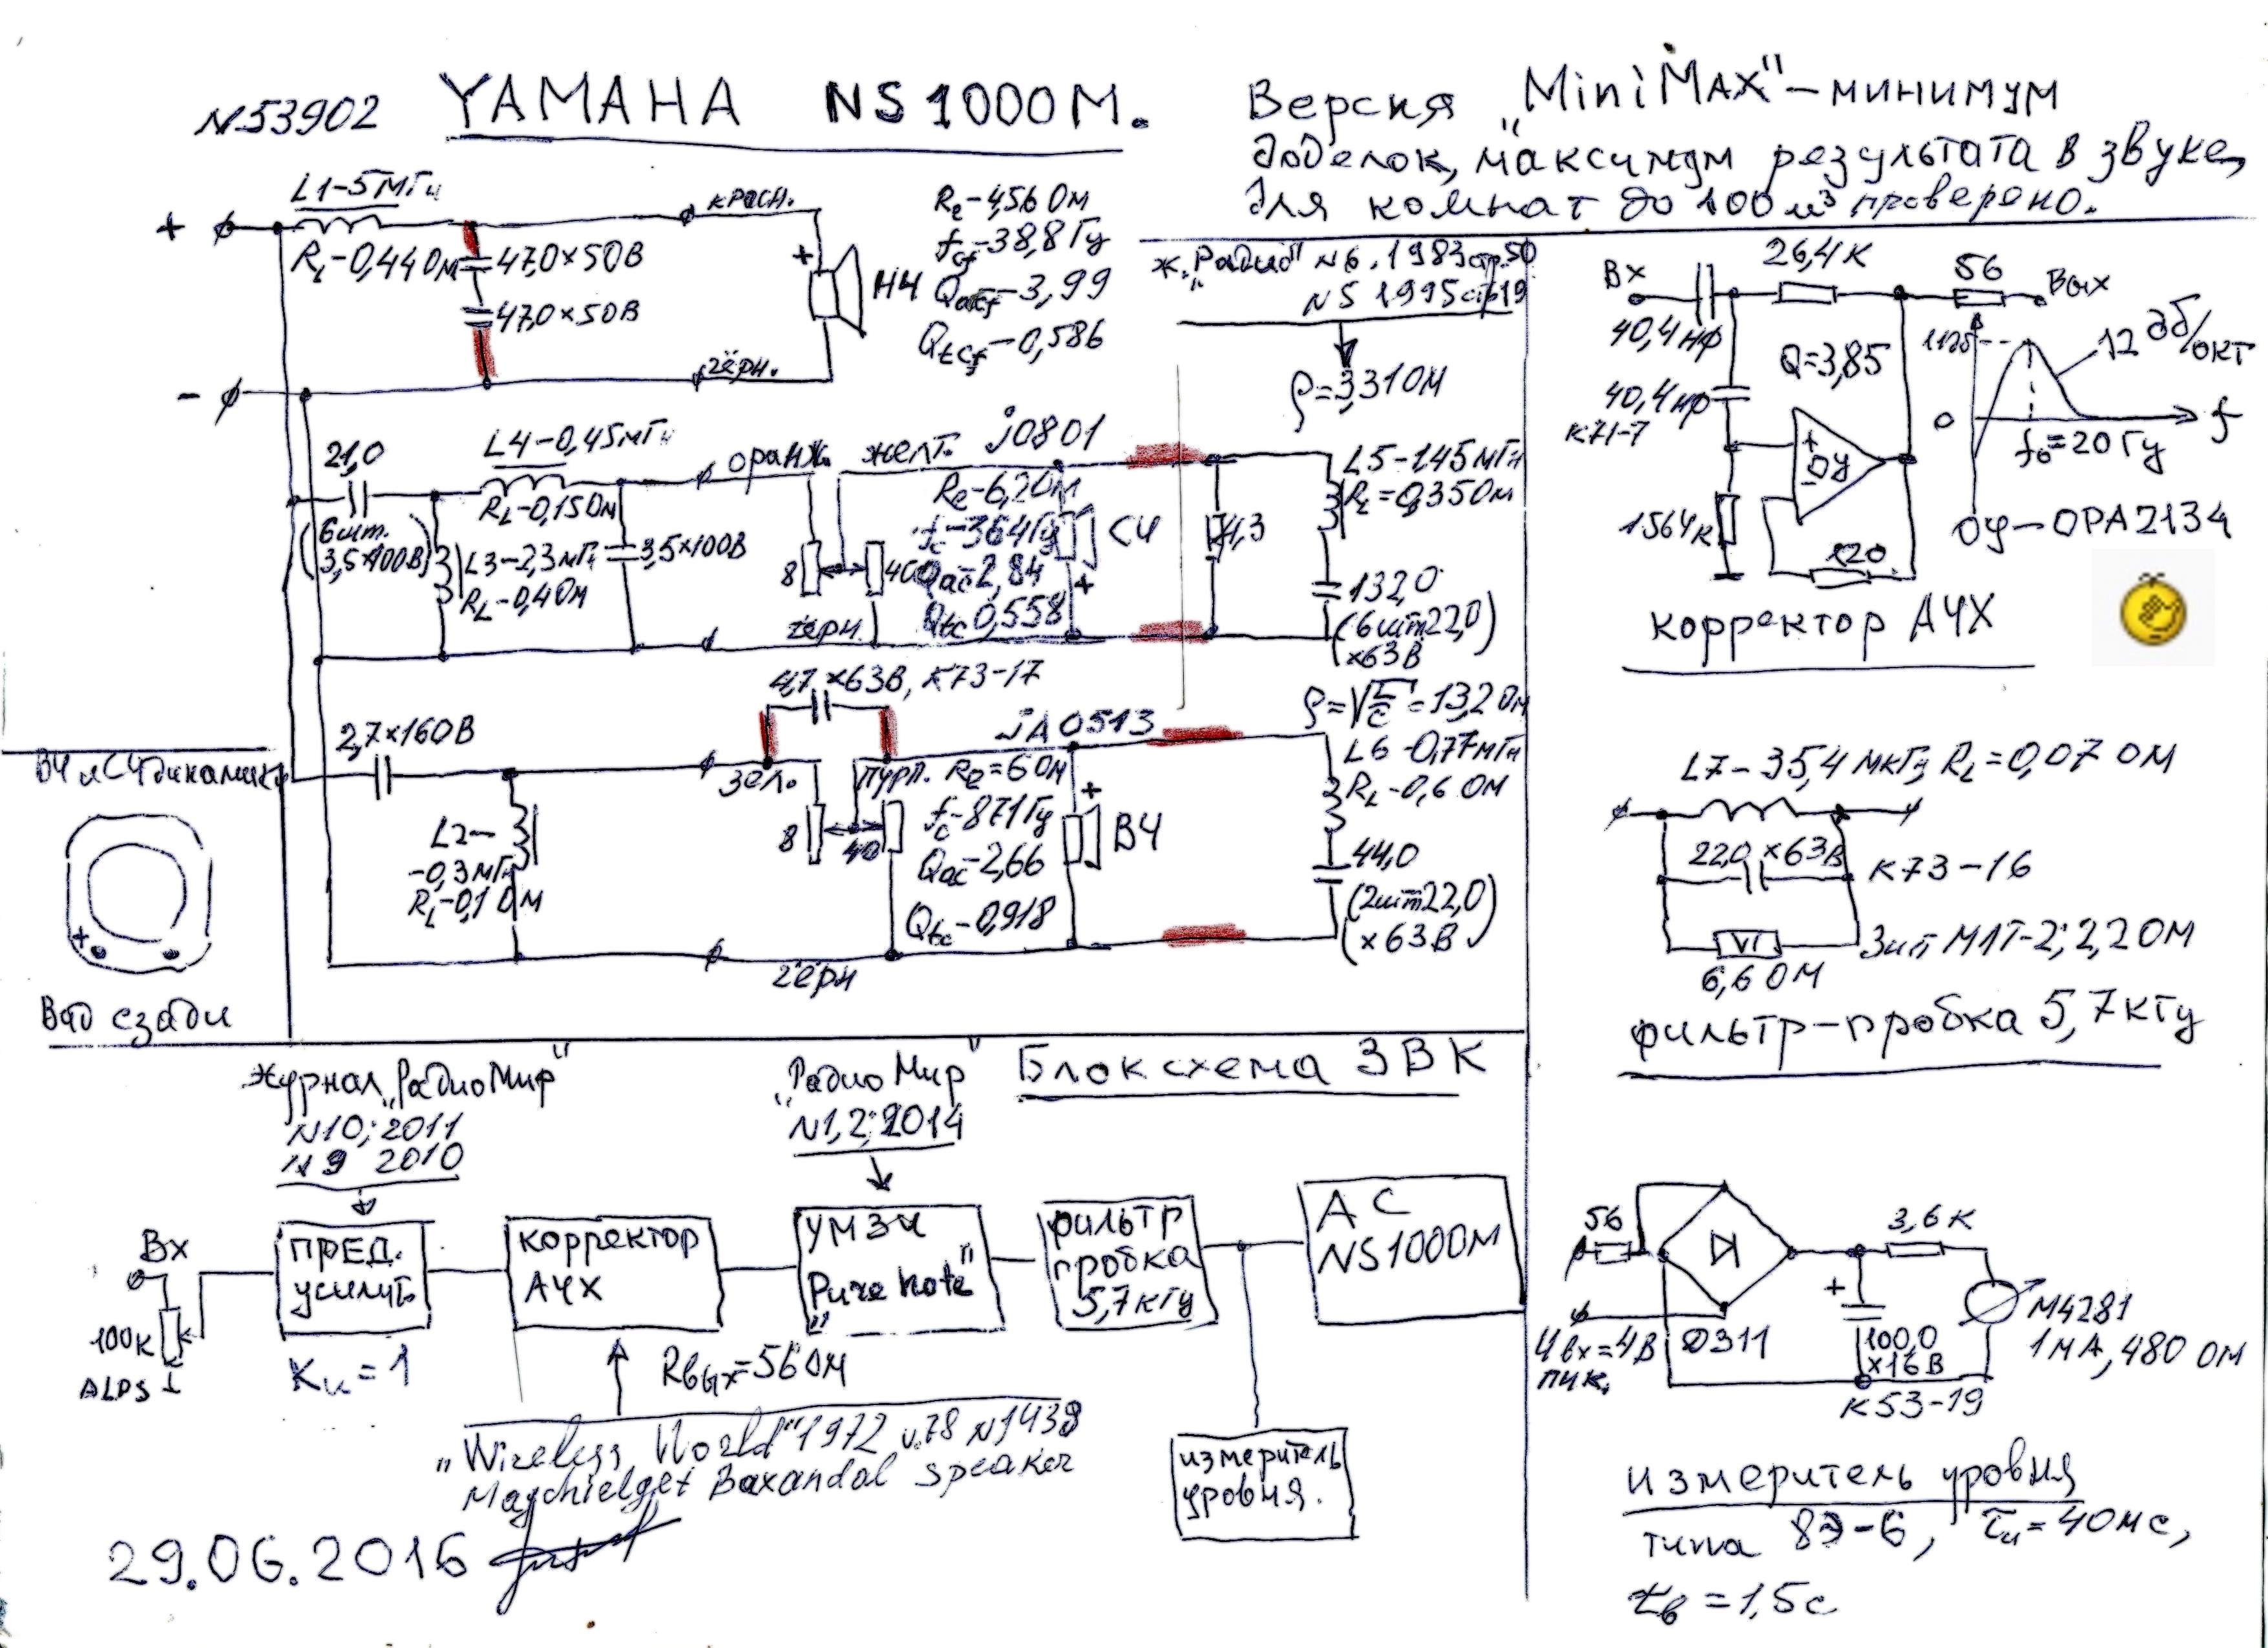 N53902
YAMAHA NS1000M.
Версия „MiniMAX" – минимум
доделок, максимум результата в звуке,
для комнат до 100м³ проверено.
L1-5мГн
RL-0,44Ом
47,0×50В
47,0×50В
красн.
чёрн.
+
-
+
НЧ
Re-4,56 Ом
fcf-38,8Гц
-3,99
Qtcf-0,586
ж. „Радио" N6, 1983 стр.50
N5 1995 стр19
ρ=3,31Ом
21,0
(6шт.
3,5×100В)
L4-0,45мГн
RL-0,15Ом
L3-2,3мГн
RL-0,4Ом
3,5×100В
оранж.
желт.
чёрн.
8
j0801
Re-6,2Ом
fc-364Гц
Qac-2,84
Qtc 0,558
СЧ
+
4,3
L5-1,45мГн
RL=0,35Ом
132,0
(6шт22,0)
×63В
4,7×63В, К73-17
2,7×160В
L2-
-0,3мГн
RL-0,1 Ом
зел.
пурп.
чёрн
8
40
JA0513
Re=6Ом
fc-871Гц
Qac-2,66
Qtc-0,918
+
ВЧ
ρ=√L/C=13,2Ом
L6-0,77мГн
RL-0,6 Ом
44,0
(2шт22,0)
×63В
ВЧ и СЧ динамики
+
Вид сзади
Вх
40,4нф
40,4нф
К71-7
26,4К
56
Вых
Q=3,85
+
ОУ
-
1564к
120
11дб
12 дб/окт
0
f
f0=20Гц
ОУ-OPA2134
корректор АЧХ
L7-35,4 мкГн RL=0,07 Ом
22,0×63В
К73-16
VI
6,6 Ом
3шт МЛТ-2; 2,2 Ом
фильтр-пробка 5,7кГц
Блоксхема ЗВК
Журнал „РадиоМир"
N10; 2011
N9 2010
„РадиоМир"
N1,2; 2014
Вх
100к
ALPS
ПРЕД.
усилит.
Ku=1
корректор
АЧХ
Rвых=56 Ом
УМЗЧ
„Pure Note"
фильтр
пробка
5,7кГц
АС
NS1000М
измеритель
уровня.
„Wireless World" 1972 v.78 N1438
Baxandal speaker
29.06.2016
56
Uвх=4В
пик.
Д311
+
100,0
×16В
К53-19
3,6К
М4281
1мА, 480 Ом
измеритель уровня
типа 8Э-6, τu=40мс,
tв=1,5с